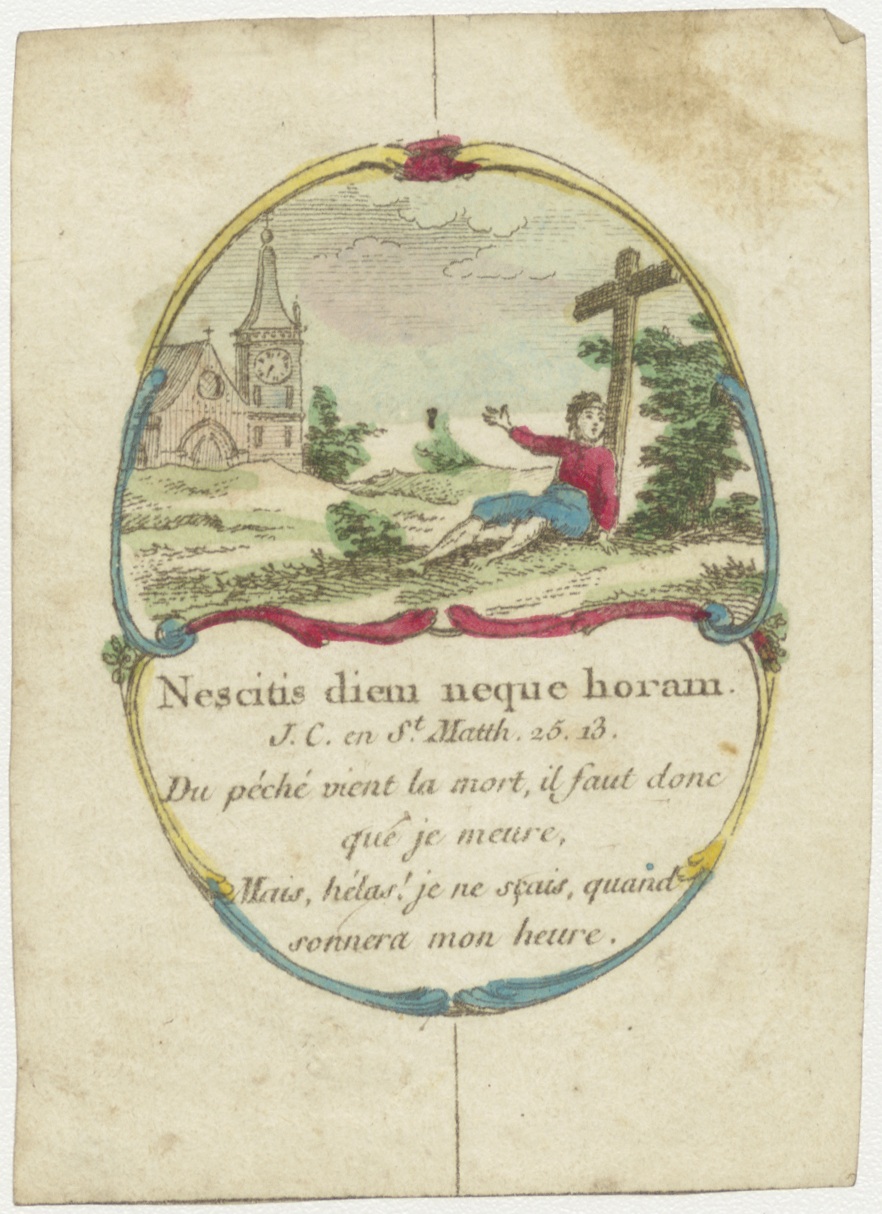 Nescitis diem neque horam.
J. C. en St. Matth. 25. 13.
Du péché vient la mort, il faut donc
que je meure,
Mais, hélas! je ne sçais, quand
sonnera mon heure.